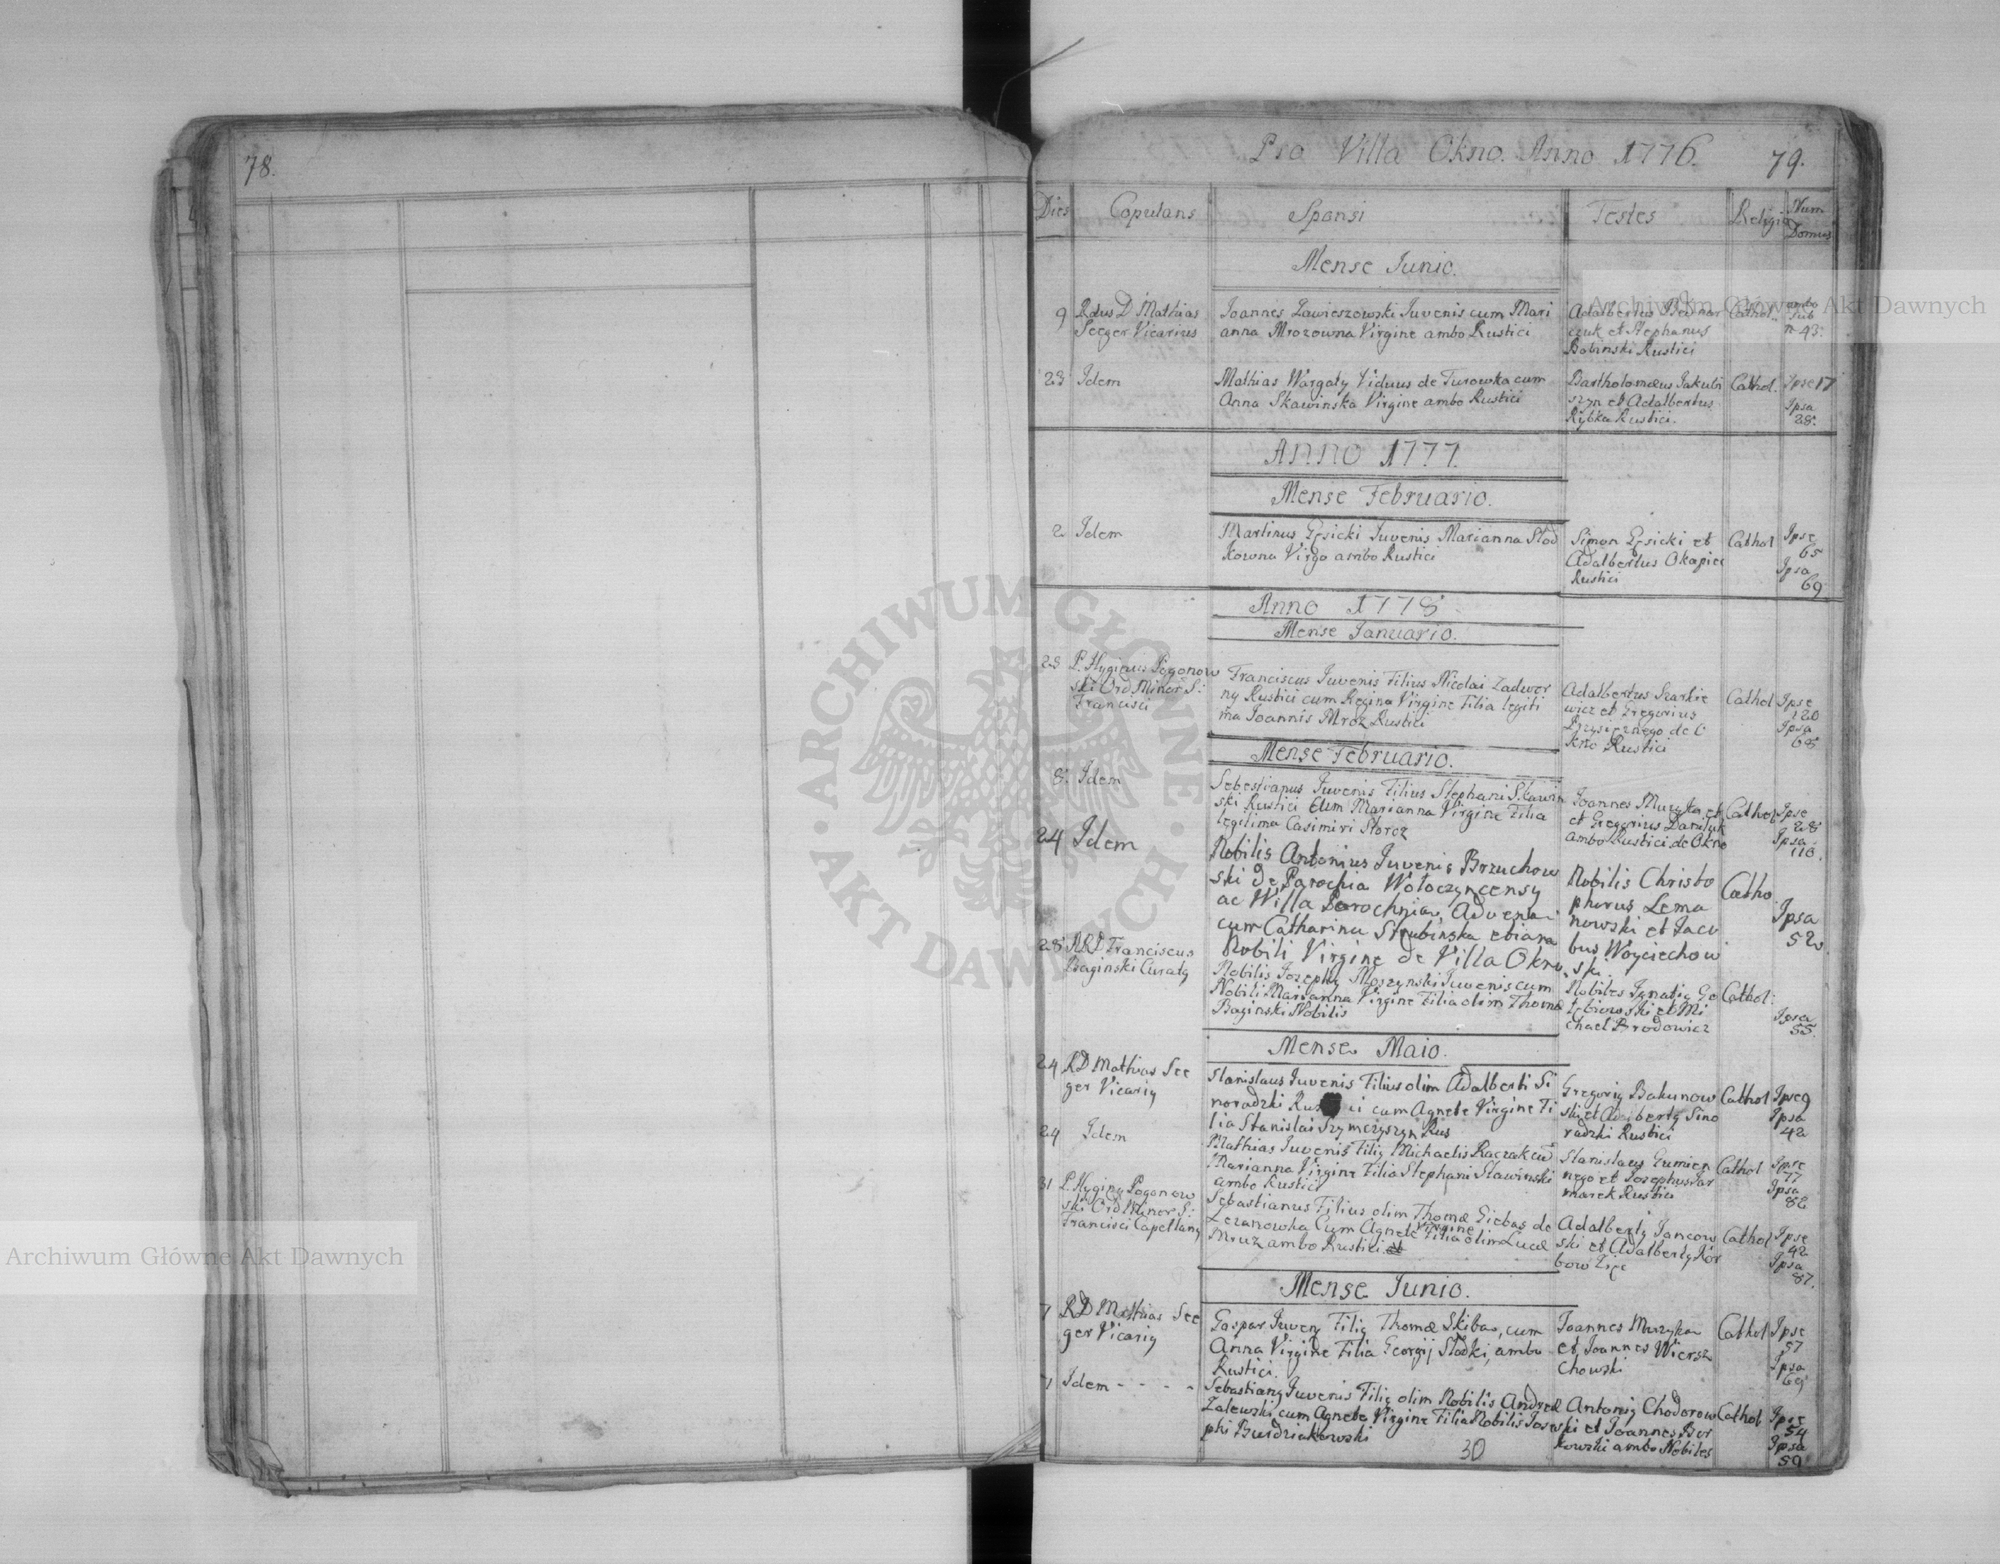 78.
Pro Villa Okno. Anno 1776. 79.
Dies Copulans Sponsi Testes Religio Num Domus
Mense Junio.
9 Rdus D Mathias Seeger Vicarius
Joannes Zawieszowski Juvenis cum Mari
anna Mrozowna Virgine ambo Rustici
Adalbertus Bednar
czuk et Stephanus
Bobinski Rustici
Cathol.
ambo
sub
n 43.
23 Idem
Mathias Wargaty Viduus de Turowka cum
Anna Skawinska Virgine ambo Rustici
Bartholomæus Jakubi
szyn et Adalbertus
Rybka Rustici.
Cathol.
Ipse 17
Ipsa
28.
Anno 1777.
Mense Februario.
2 Idem
Martinus Gęsicki Juvenis Marianna Słod
kowna Virgo ambo Rustici
Simon Gęsicki et
Adalbertus Okapiec
Rustici
Cathol
Ipse
65
Ipsa
69
Anno 1778
Mense Januario.
28 P. Hyginus Pogonow
ski Ord Minor S:
Francisci
Franciscus Juvenis Filius Nicolai Zadwor
ny Rustici cum Regina Virgine Filia legiti
ma Joannis Mroz Rustici
Adalbertus Szarkie
wicz et Gregorius
Przysiężnego de O
kno Rustici
Cathol
Ipse
120
Ipsa
68
Mense Februario.
8. Idem
Sebestianus Juvenis Filius Stephani Sławin
ski Rustici Cum Marianna Virgine Filia
legitima Casimiri Storcz
Joannes Muzyka et
et Gregorius Daniluk
ambo Rustici de Okno
Cathol
Ipse
28
Ipsa
110.
24 Idem
Nobilis Antonius Juvenis Brzuchow
ski de Parochia Wołoczyncensy
ac Villa Porochnia, Advena
cum Catharina Strubinska etiam
Nobili Virgine de Villa Okno
Nobilis Christo
phorus Lema
nowski et Jaco
bus Woyciechow
ski.
Catho
Ipsa
52
28 ARD Franciscus
Baginski Curatg
Nobilis Josephg Moszynski Juvenis cum
Nobili Marianna Virgine Filia olim Thomæ
Baginski Nobilis
Nobiles Ignatig Go
łębiowski et Mi
chael Brodowicz
Cathol:
Ipsa
55.
Mense Maio.
24 RD Mathias See
ger Vicarig
Stanislaus Juvenis Filius olim Adalberti Si
noradzki Rus ii cum Agnete Virgine Fi
lia Stanislai Szymczyszyn Rus
Gregorig Bakunow
ski et Adalbertg Sino
radzki Rustici
Cathol
Ipse 9
Ipsa
42
24 Idem
Mathias Juvenis Filig Michaelis Raczak cu
Marianna Virgine Filia Stephani Sławinski
ambo Rustici
Stanislaus Gumien
nego et Josephus Jar
marek Rustici
Cathol
Ipse
77
Ipsa
82
31 P. Hyging Pogonow
ski Ord Minor S:
Francisci Capellang
Sebastianus Filius olim Thomæ Giebas de
Zeranowka Cum Agnete Virgine Filia olim Lucæ
Mruz ambo Rustici
Adalbertg Jancow
ski et Adalbertg Kor
bow
Cathol
Ipse
42
Ipsa
87.
Mense Junio.
7 RD Mathias See
ger Vicarig
Gaspar Juveng Filig Thomæ Skiba, cum
Anna Virgine Filia Georgij Słodki, ambo
Rustici.
Joannes Muzyka
et Joannes Wiersz
chowski
Cathol
Ipse
57
Ipsa
69
7 Idem - - - -
Sebastiang Juvenis Filig olim Nobilis Andreæ
Zalewski cum Agnete Virgine Filia Nobilis Jose
phi Burdziakowski
Antonig Chodorow
ski et Joannes Bor
kowski ambo Nobiles
Cathol
Ipse
54
Ipsa
59
30
Archiwum Główne Akt Dawnych
Archiwum Główne Akt Dawnych
ARCHIWUM GŁÓWNE
AKT DAWNYCH